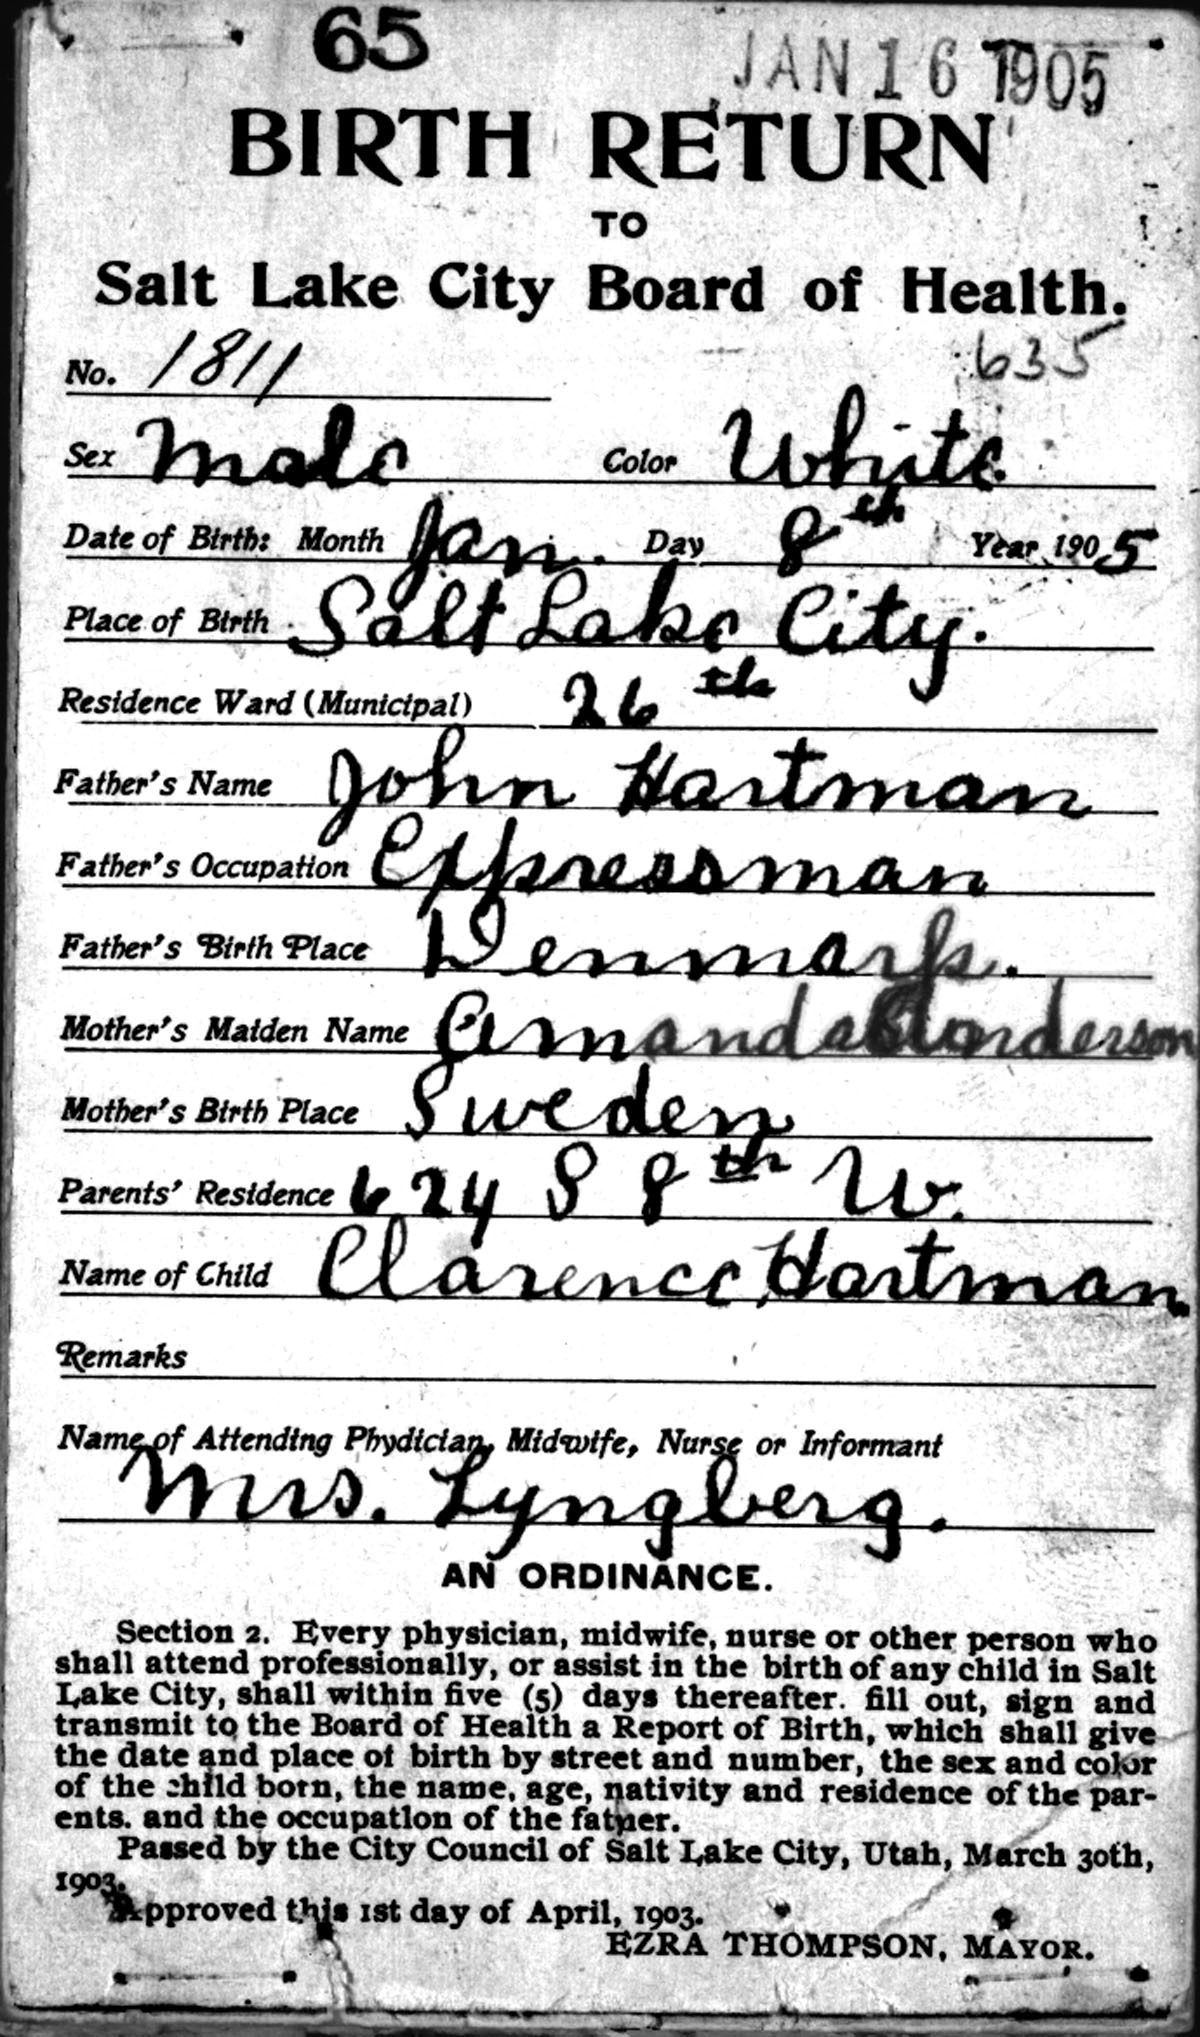 65
JAN 16 1905
BIRTH RETURN
TO
Salt Lake City Board of Health.
No. 1811 635
Sex Male Color White
Date of Birth: Month Jan. Day 8th Year 1905
Place of Birth Salt Lake City.
Residence Ward (Municipal) 26th
Father's Name John Hartman
Father's Occupation Expressman
Father's Birth Place Denmark.
Mother's Maiden Name Amanda Anderson
Mother's Birth Place Sweden
Parents' Residence 624 S 8th W.
Name of Child Clarence Hartman
Remarks
Name of Attending Phydician, Midwife, Nurse or Informant
Mrs. Lyngberg.
AN ORDINANCE.
Section 2. Every physician, midwife, nurse or other person who
shall attend professionally, or assist in the birth of any child in Salt
Lake City, shall within five (5) days thereafter. fill out, sign and
transmit to the Board of Health a Report of Birth, which shall give
the date and place of birth by street and number, the sex and color
of the child born, the name, age, nativity and residence of the par-
ents. and the occupation of the father.
Passed by the City Council of Salt Lake City, Utah, March 30th,
1903.
Approved this 1st day of April, 1903.
EZRA THOMPSON, MAYOR.